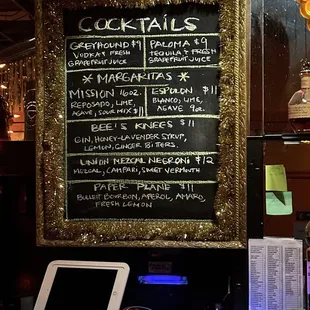 COCKTAILS
GREYHOUND $9
VODKA + FRESH
GRAPEFRUIT JUICE
PALOMA $9
TEQUILA + FRESH
GRAPEFRUIT JUICE
* MARGARITAS *
MISSION 16oz.
REPOSADO, LIME,
AGAVE, SOUR MIX $11
ESPOLON $11
BLANCO, LIME,
AGAVE 9oz.
BEE'S KNEES $11
GIN, HONEY-LAVENDER SYRUP,
LEMON, GINGER BITTERS.
UNION MEZCAL NEGRONI $12
MEZCAL, CAMPARI, SWEET VERMOUTH
PAPER PLANE $11
BULLEIT BOURBON, APEROL, AMARO,
FRESH LEMON